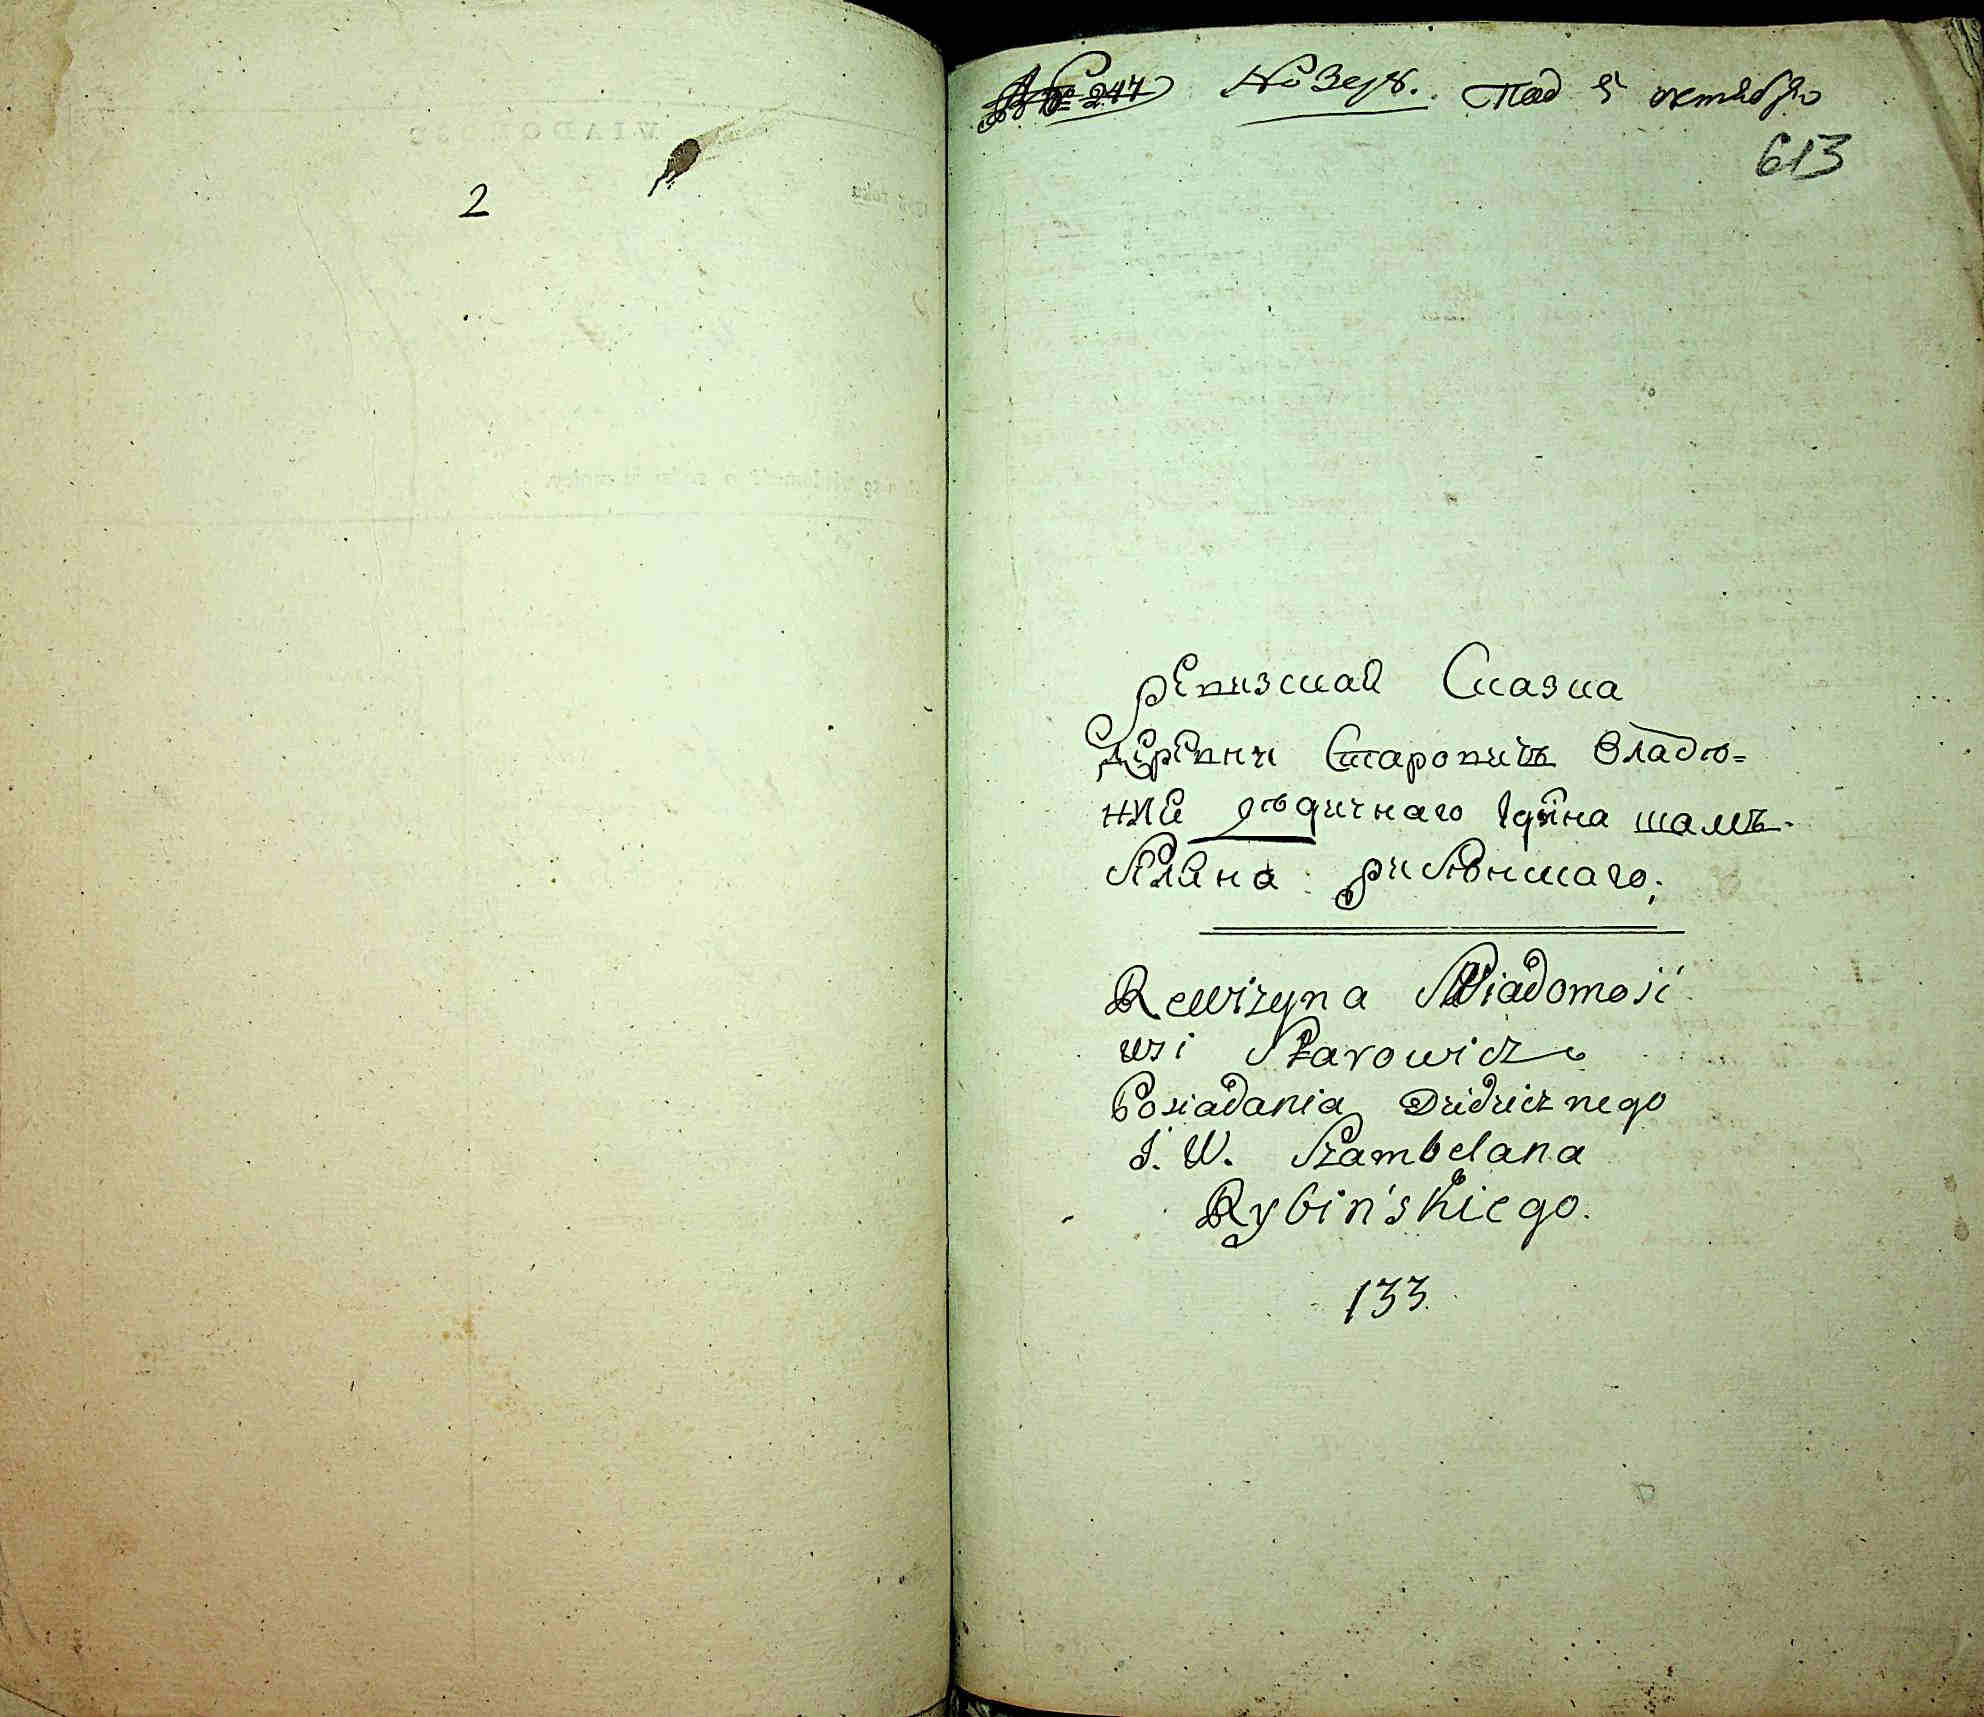 2
№ 247 Под 5 октября
613
Ревизская Сказка
деревни Старовичь владе=
ния дѣдичнаго Пана шамъ-
беляна рибѣнскаго;
Rewizyna Wiadomość
wsi Starowicz
Posiadania Dziedzicznego
J. W. Szambelana
Rybińskiego.
133